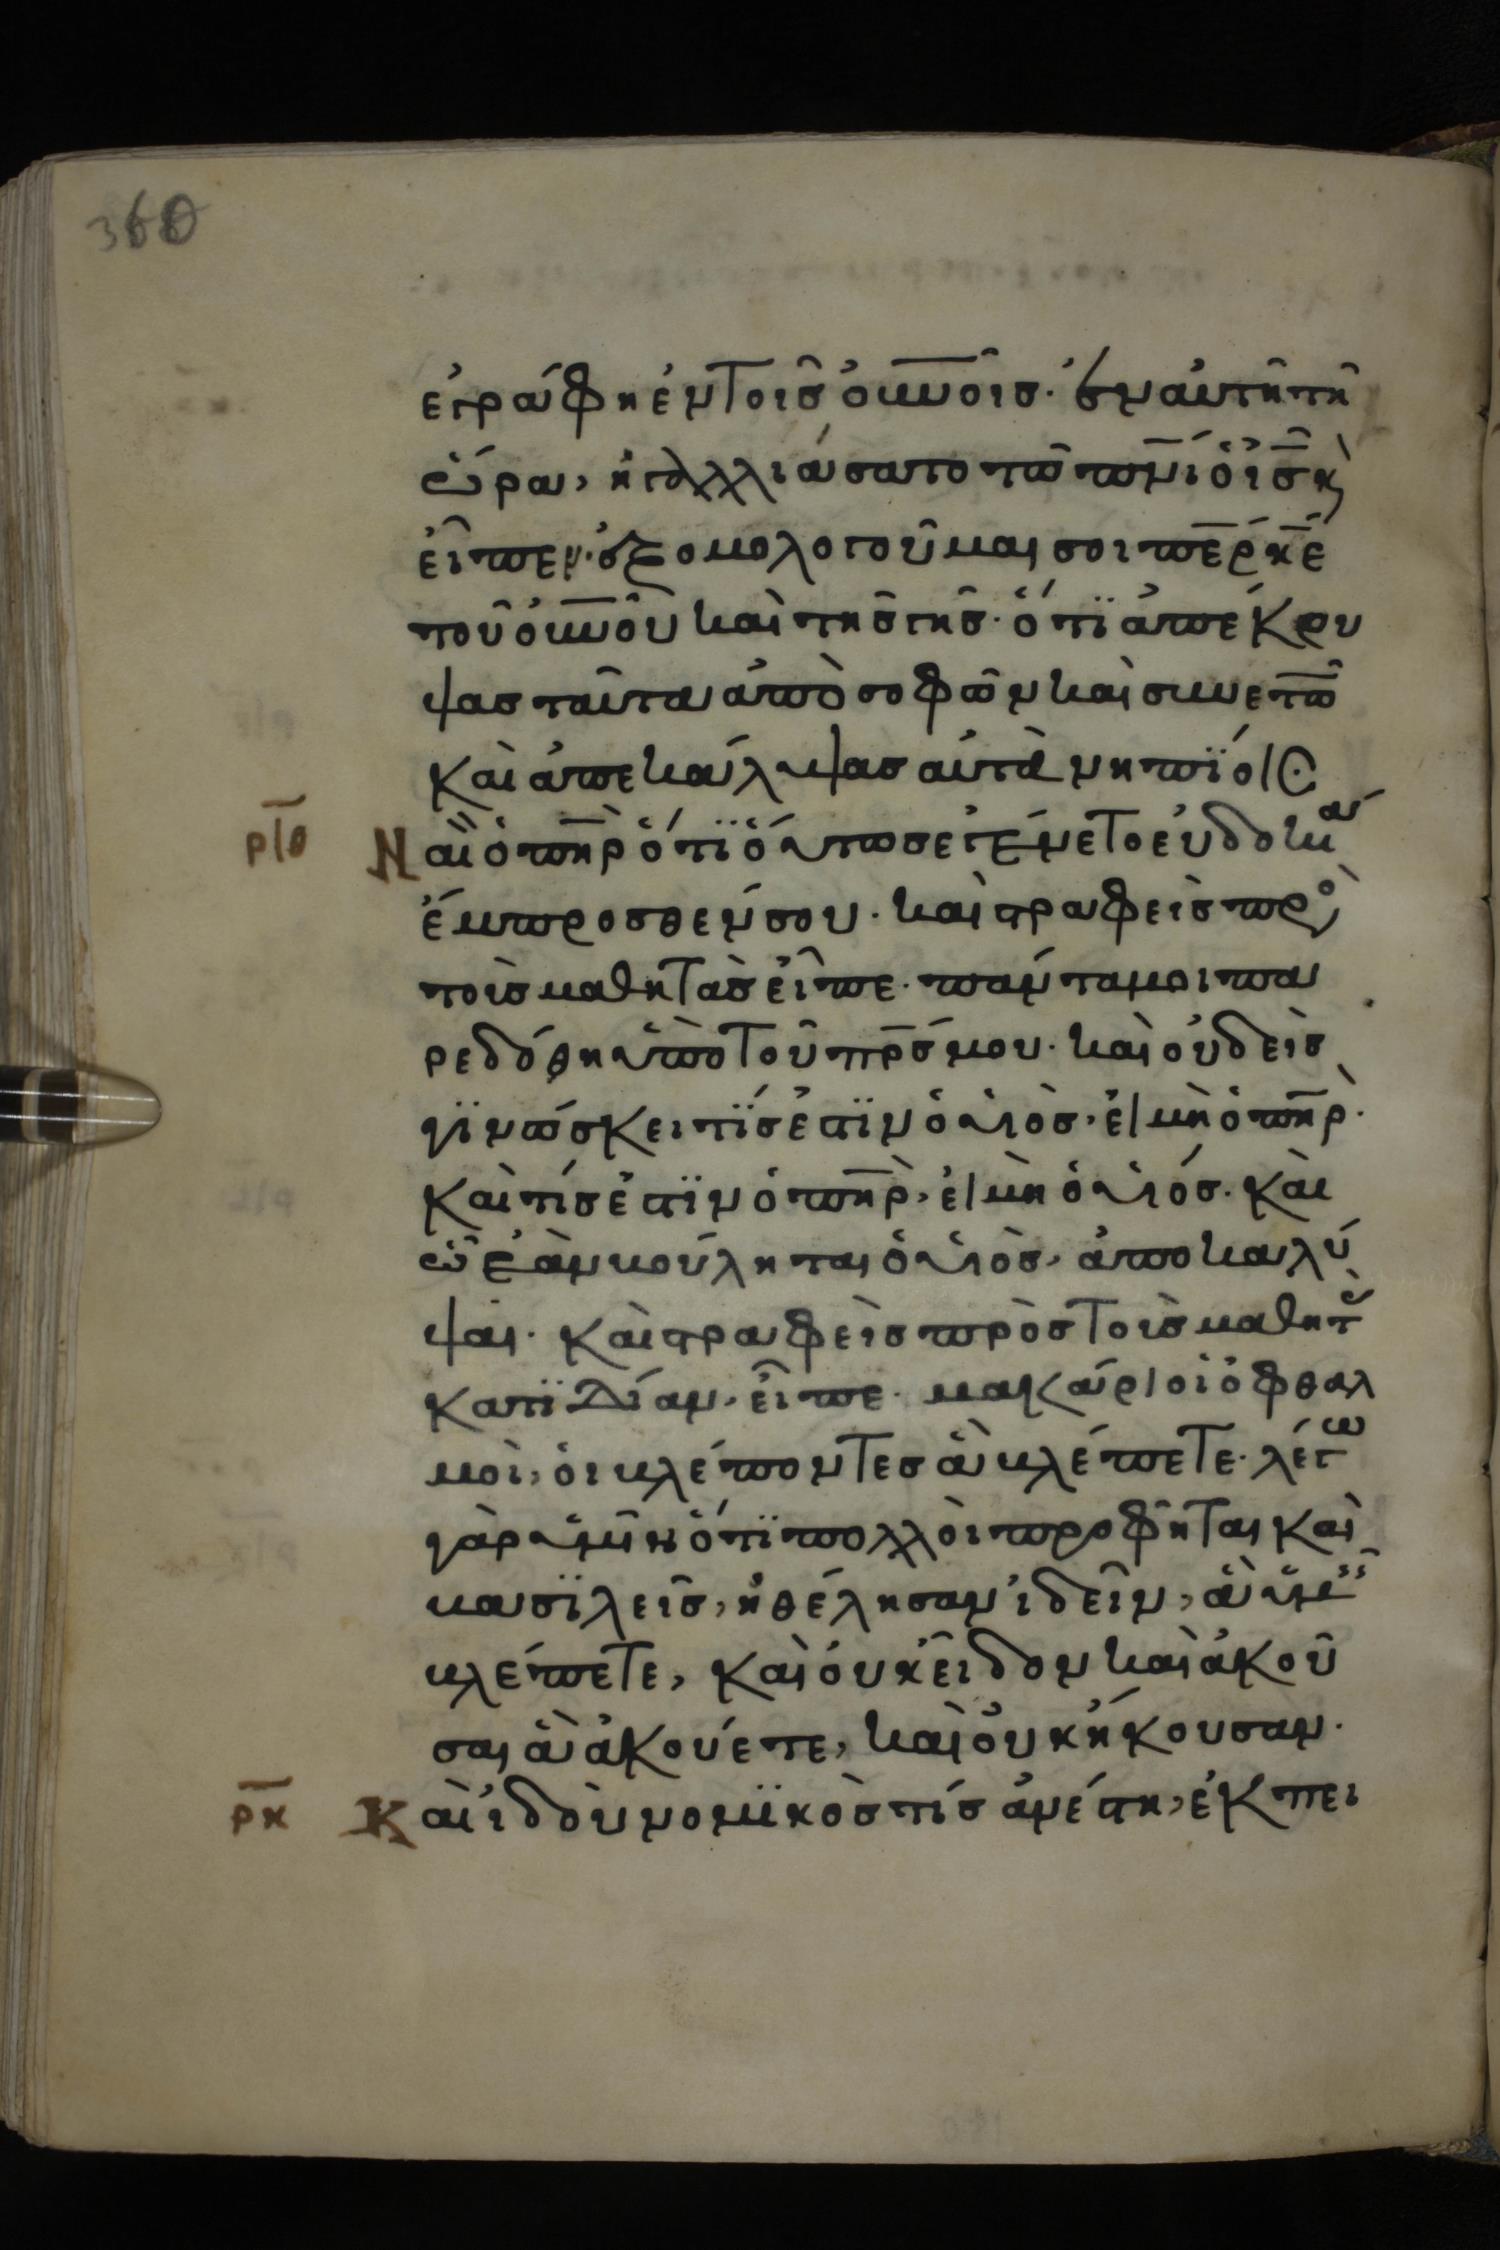 360
ἐγράφη ἐν τοῖς οὐνοῖς. ἐν αὐτῇ τῇ
ὥρα, ἠγαλλιάσατο τῶ πνι ὁ ις κ
εἶπεν. ἐξομολογοῦμαι σοι περ κε
τοῦ οὐνοῦ καὶ τῆς γῆς. ὅτϊ ἀπέκρυ
ψας ταῦτα ἀπὸ σοφῶν καὶ συνετῶ
καὶ ἀπεκάλυψας αὐτὰ νηπϊοις
ριθ Ναὶ ὁ πηρ ὅτϊ οὕτως ἐγένετο εὐδοκία
ἔμπροσθέν σου. καὶ στραφεὶς πρ
τοὺς μαθητὰς εἶπε. πάντα μοι πα
ρεδόθη ὑπὸ τοῦ πρς μου. καὶ οὐδεὶς
γϊνώσκει τίς ἐστϊν ὁ υἱὸς, εἰ μὴ ὁ πηρ.
καὶ τίς ἐστϊν ὁ πηρ, εἰ μὴ ὁ υἱός. καὶ
ὧ ἐὰν βούληται ὁ υἱὸς, ἀποκαλύ
ψαι. καὶ στραφεὶς πρὸς τοὺς μαθητ
κατϊδίαν, εἶπε. μακάριοι ὀφθαλ
μοὶ, οἱ βλέποντες ἃ βλέπετε. λέγω
γὰρ ὑμῖν ὅτϊ πολλοὶ προφῆται καὶ
βασϊλεῖς, ἠθέλησαν ἰδεῖν, ἃ ὑμεῖς
βλέπετε, καὶ οὐκ εἶδον καὶ ἀκοῦ
σαι ἃ ἀκούετε, καὶ οὐκ ἤκουσαν.
ρκ Καὶ ἰδοὺ νομϊκὸς τίς ἀνέστη, ἐκπει